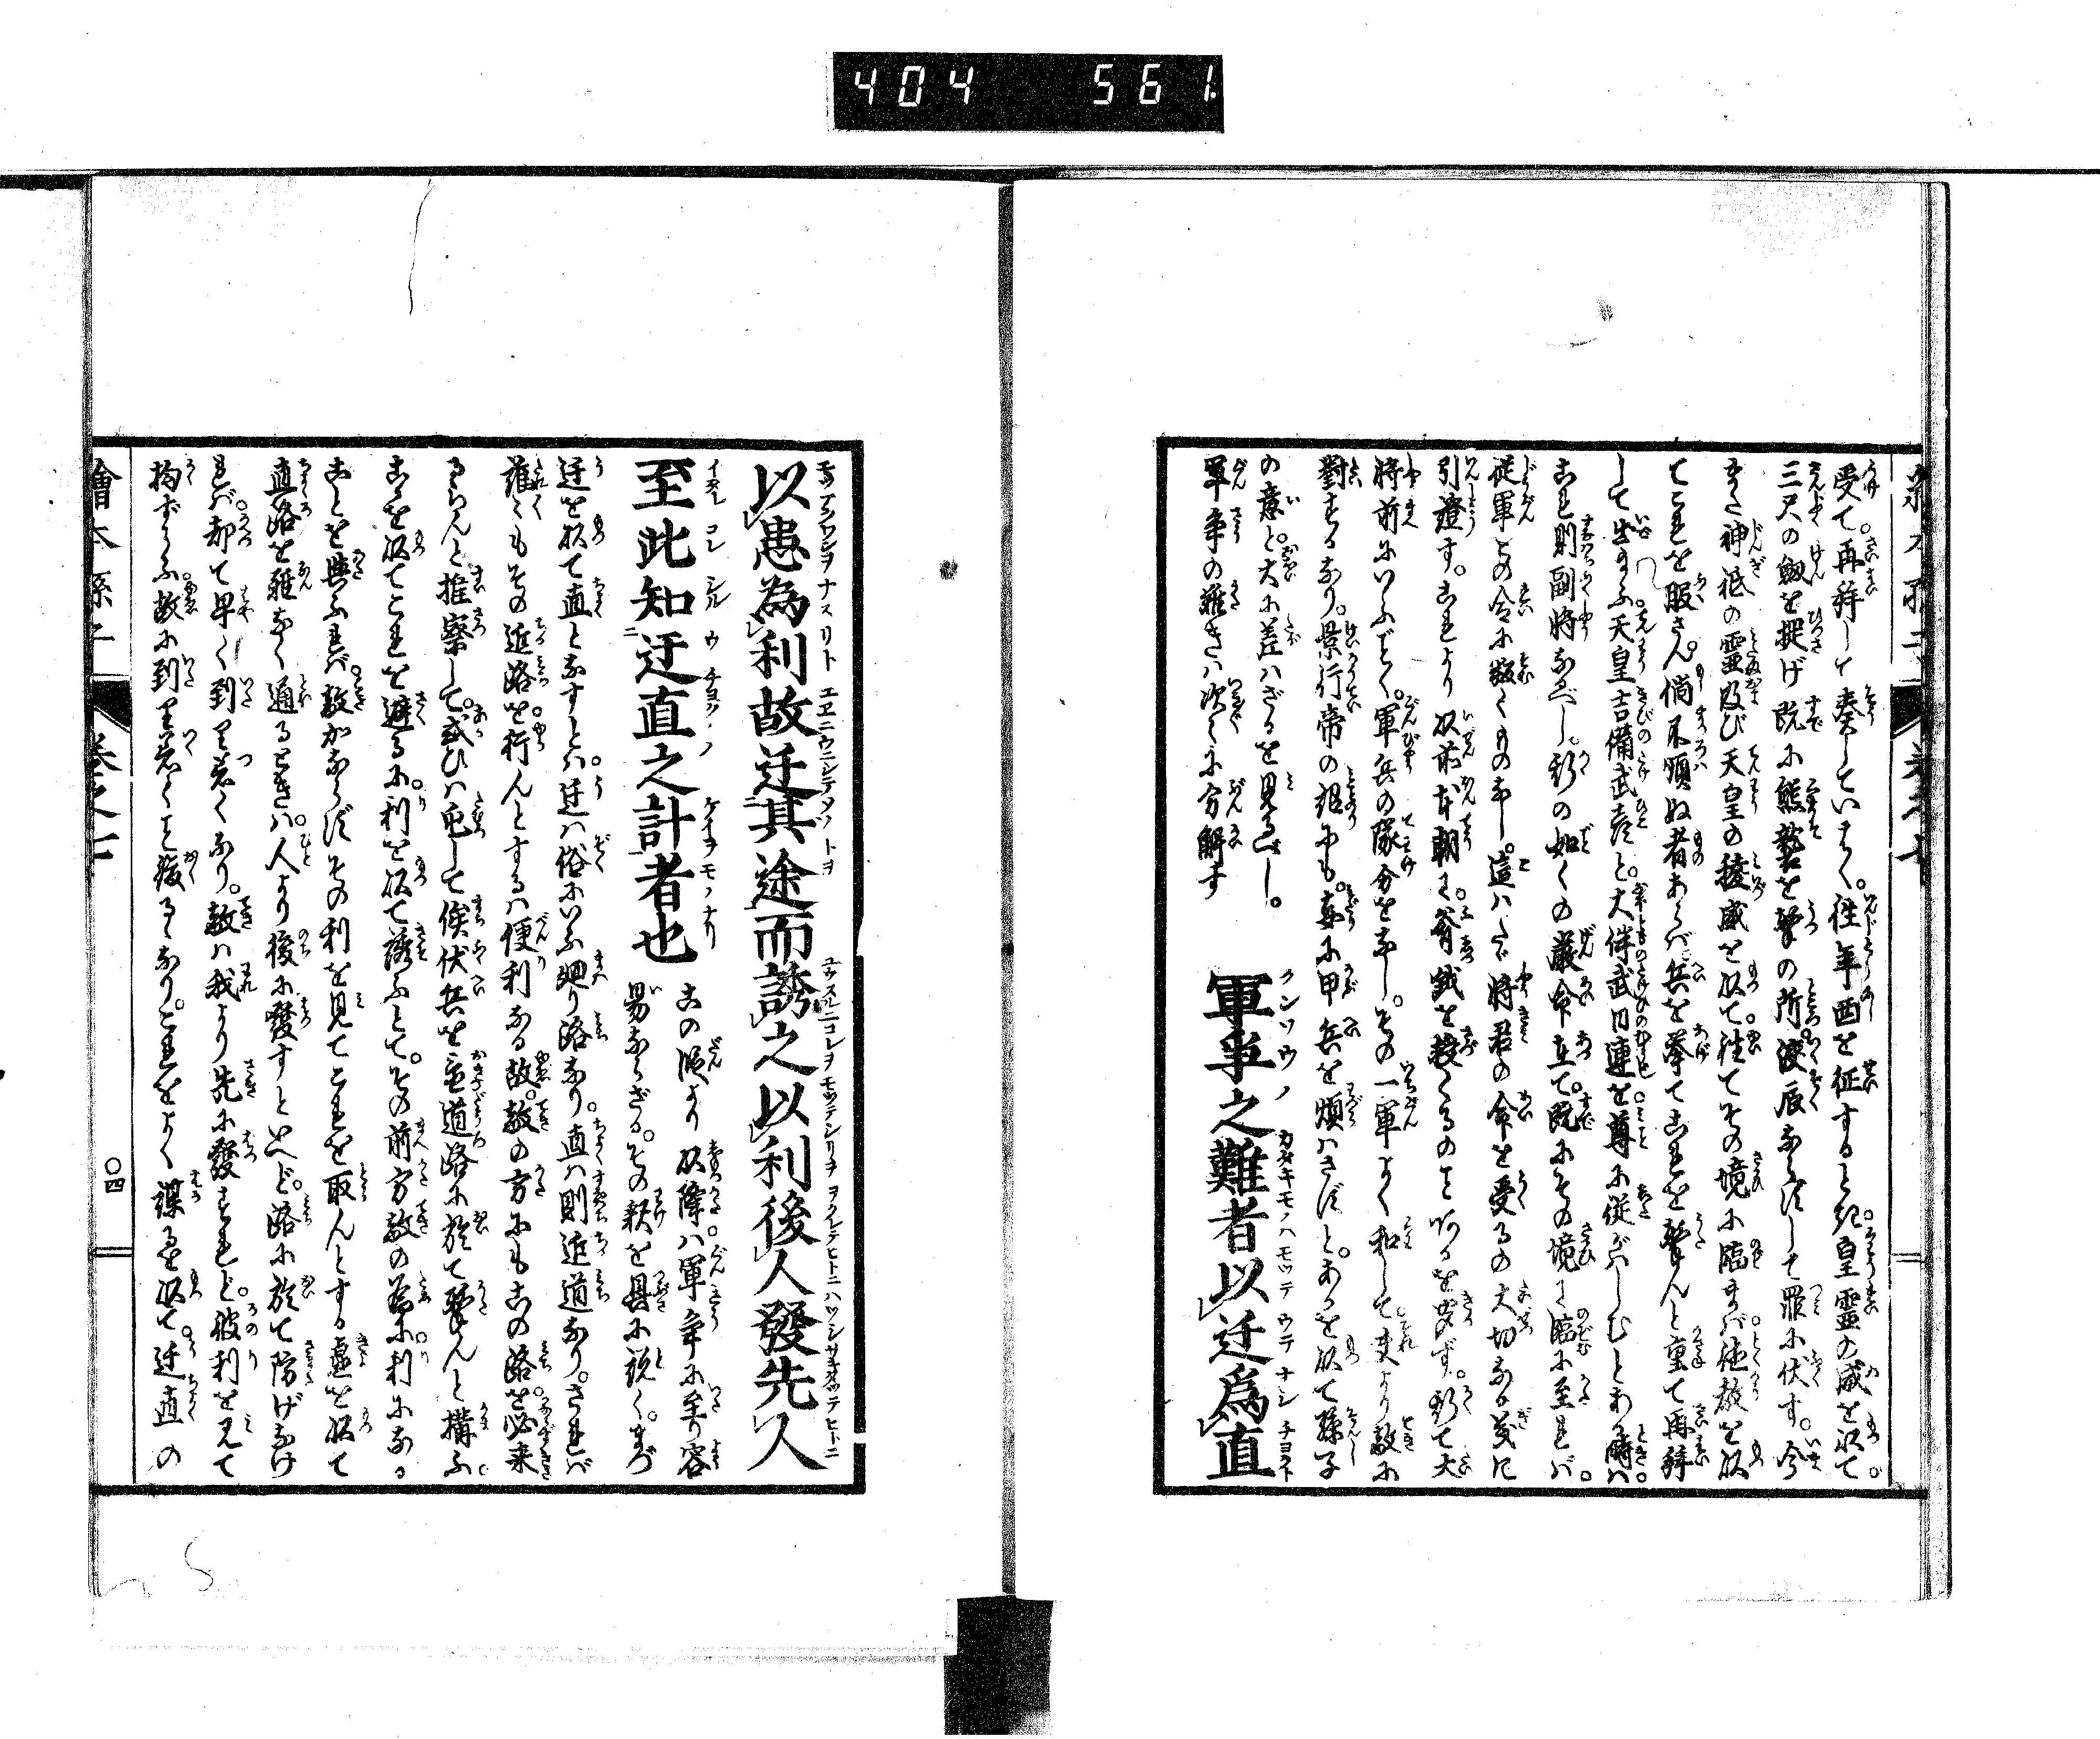 404 561
受て。再拝して奏していはく。往年西を征すると紀。皇霊の威を以て。
三尺の劔を提げ既に熊襲を撃の所。浹辰ならずして罪に伏す。今
また神祗の霊及び天皇の稜威を以て。往てその境に臨まば徳教を以
てこれを服さん。倘不順ぬ者あらば。兵を挙てこれを撃んと重て再拝
して出給ふ。天皇吉備武彦と。大伴武日連を。尊に従がはしむとあり。時ハ
これ則副将なるべし。斯の如くの厳命在て。既にその境に臨に至れバ。
従軍その令に敷くものなし。這ハただ将君の命を受るの大切なる義に
引證す。これより以前本朝に。斧鉞を授くるのこと
將前にいふごとく。軍兵の隊分をなし。その一軍よく和して。夫より敵に
對するなり。景行帝の詔にも。妄に甲兵を煩ハさずと。あるを以て孫子
の意と。大に差ハざるを見るべし。
軍争の難きハ次々に分解す
軍争之難者以迂爲直
以患為利故迂其途而誘之以利後人發先人
至此知迂直之計者也
この條より以降ハ。軍争に至り容
易ならざる。その釈を具に説く。まづ
迂を以て直となすとハ。迂ハ俗にいふ廻り路なり。直ハ則近道なり。されバ
誰くもその近路を。行んとするハ便利なる故。敵の方にもこの路を。必来
るらんと推察して。或ひハ屯して俟伏兵を並。道路に於て撃んと構ふ。
これを以てこれを避るに。利を以て誘ふとて。その前方敵の為に。利になる
ことを與ふれバ。敵かならずその利を見てこれを取んとする虚を以て
直路を難なく通るときハ。人より後に發すといへど。路に於て防げなけ
れバ。却て早く到り着くなり。敵ハ我より先に發すれど。彼利を見て
拘ずらふ。故に到り着くこと後るるなり。これをよく謀るを以て。迂直の
繪本孫子
巻之七
〇四